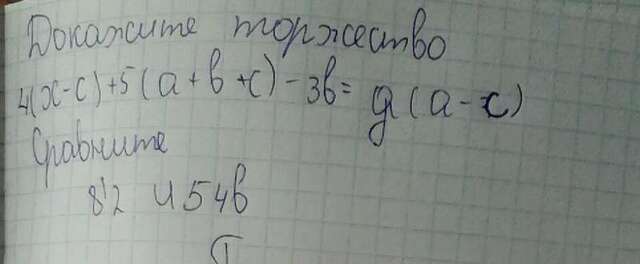 Докажите торжество
4(x-c)+5(a+в+c)-3в= g(a-c)
Сравните
8'2 и 54в